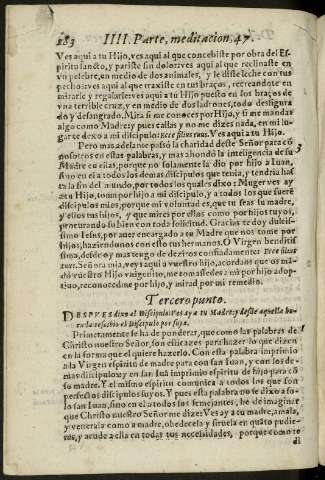 283 IIII. Parte, meditacion.47.
Ves aqui a tu Hijo, ves aqui al que concebiste por obra del Es-
piritu sancto, y pariste sin dolor: ves aqui al que reclinaste en
vn pesebre, en medio de dos animales, y le diste leche con tus
pechos: ves aqui al que traxiste en tus braços, recreandote en
mirarle y regalarle: ves aqui a tu Hijo puesto en los braços de
vna terrible cruz, y en medio de dos ladrones, todo desfigura
do y desangrado. Mira si me conoces por Hijo, y si me mandas
algo como Madre: y pues callas y no me dizes nada, en mi lu-
gar te dexo a mi discipulo: Ecce filius tuus. Ves aqui a tu Hijo.
Pero mas adelante passò la charidad deste Señor para cō
nosotros en estas palabras, y mas ahondò la inteligencia de su 3
Madre en ellas, porque no solamente la dio por hijo a Iuan,
sino en el a todos los demas discipulos que tenia, y tendria has
ta la fin del mundo, por todos los quales dixo: Muger ves ay
a tu Hijo, toma por hijo a mi discipulo, y a todos los que fuerē
discipulos mios, porque mi voluntad es, que tu seas su madre,
y ellos tus hijos, y que mires por ellos como por hijos tuyos,
procurando su bien con toda solicitud. Gracias te doy dulcis-
simo Iesus, por auer encargado a tu Madre que nos tome por
hijos, haziendonos con esto tus hermanos. O Virgen benditis
sima, desde oy mas tengo de deziros confiadamente: Ecce filius
tuus. Señora mia, veys aqui a vuestro hijo, acordaos que os mā
dò vuestro Hijo vnigenito, me tomassedes a mi por hijo adop-
tiuo, reconocedme por hijo, y mirad por mi remedio.
Tercero punto.
DESPVES dixo al Discipulo: Ves ay a tu Madre: y desde aquella ho
ra la rescibio el Discipulo por suya.
Primeramente se ha de ponderar, que como las palabras de 1
Christo nuestro Señor, son eficaces para hazer lo que dizen
en la forma que el quiere hazerlo. Con esta palabra imprimio
a la Virgen espiritu de madre para con san Iuan, y con los de-
mas discipulos: y en san Iuā imprimio espiritu de hijo para cō
su madre. Y el mismo espiritu comunica a todos los que son
perfectos discipulos suyos. Y pues esta palabra no se dixo a so-
lo san Iuan, sino en el a todos sus semejantes, he de imaginar
que Christo nuestro Señor me dize: Ves ay a tu madre, amala,
y venerala como a madre, obedecela y siruela en quāto pudie-
res, y acude a ella en todas tus necesidades, porque como te
di